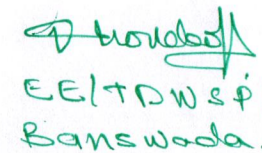 EE/TDWSP
Banswada.